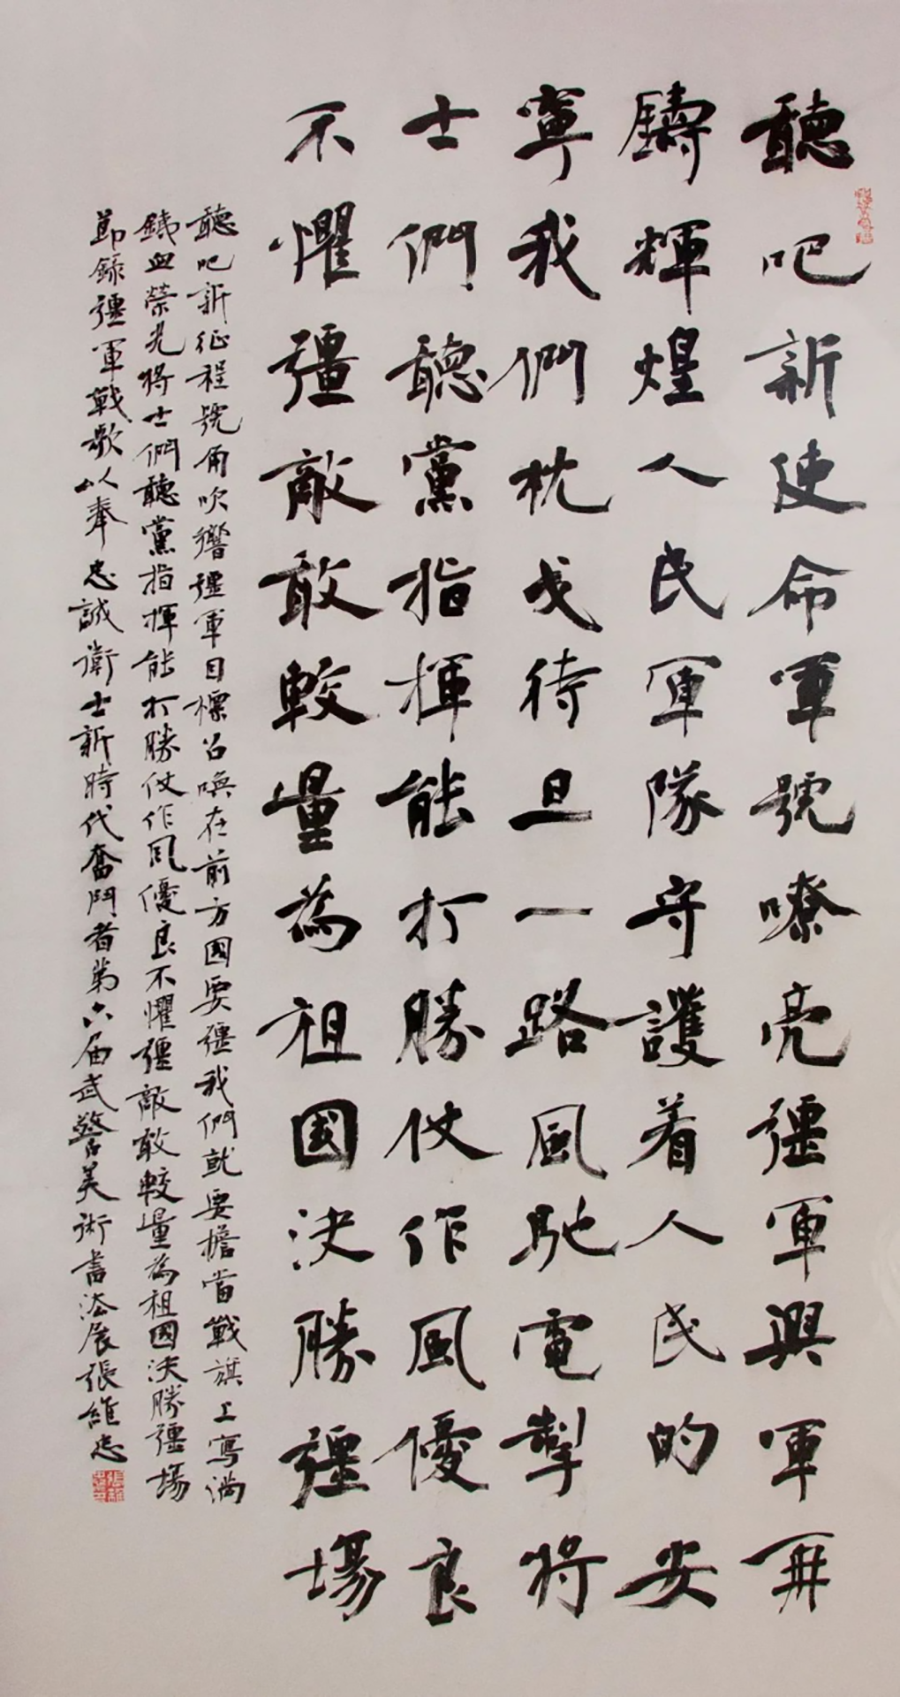 聽吧新使命軍號嘹亮彊軍興軍再
鑄輝煌人民軍隊守護着人民的安
寧我們枕戈待旦一路風馳電掣将
士們聽黨指揮能打勝仗作風優良
不懼彊敵敢較量為祖國決勝疆場
聽吧新征程號角吹響彊軍目標召喚在前方國要彊我們就要擔當戰旗上寫满
鐵血榮光将士們聽黨指揮能打勝仗作風優良不懼彊敵敢較量為祖國決勝疆場
節録彊軍戰歌以奉忠誠衛士新時代奮鬥者第六届武警美術書法展張維忠